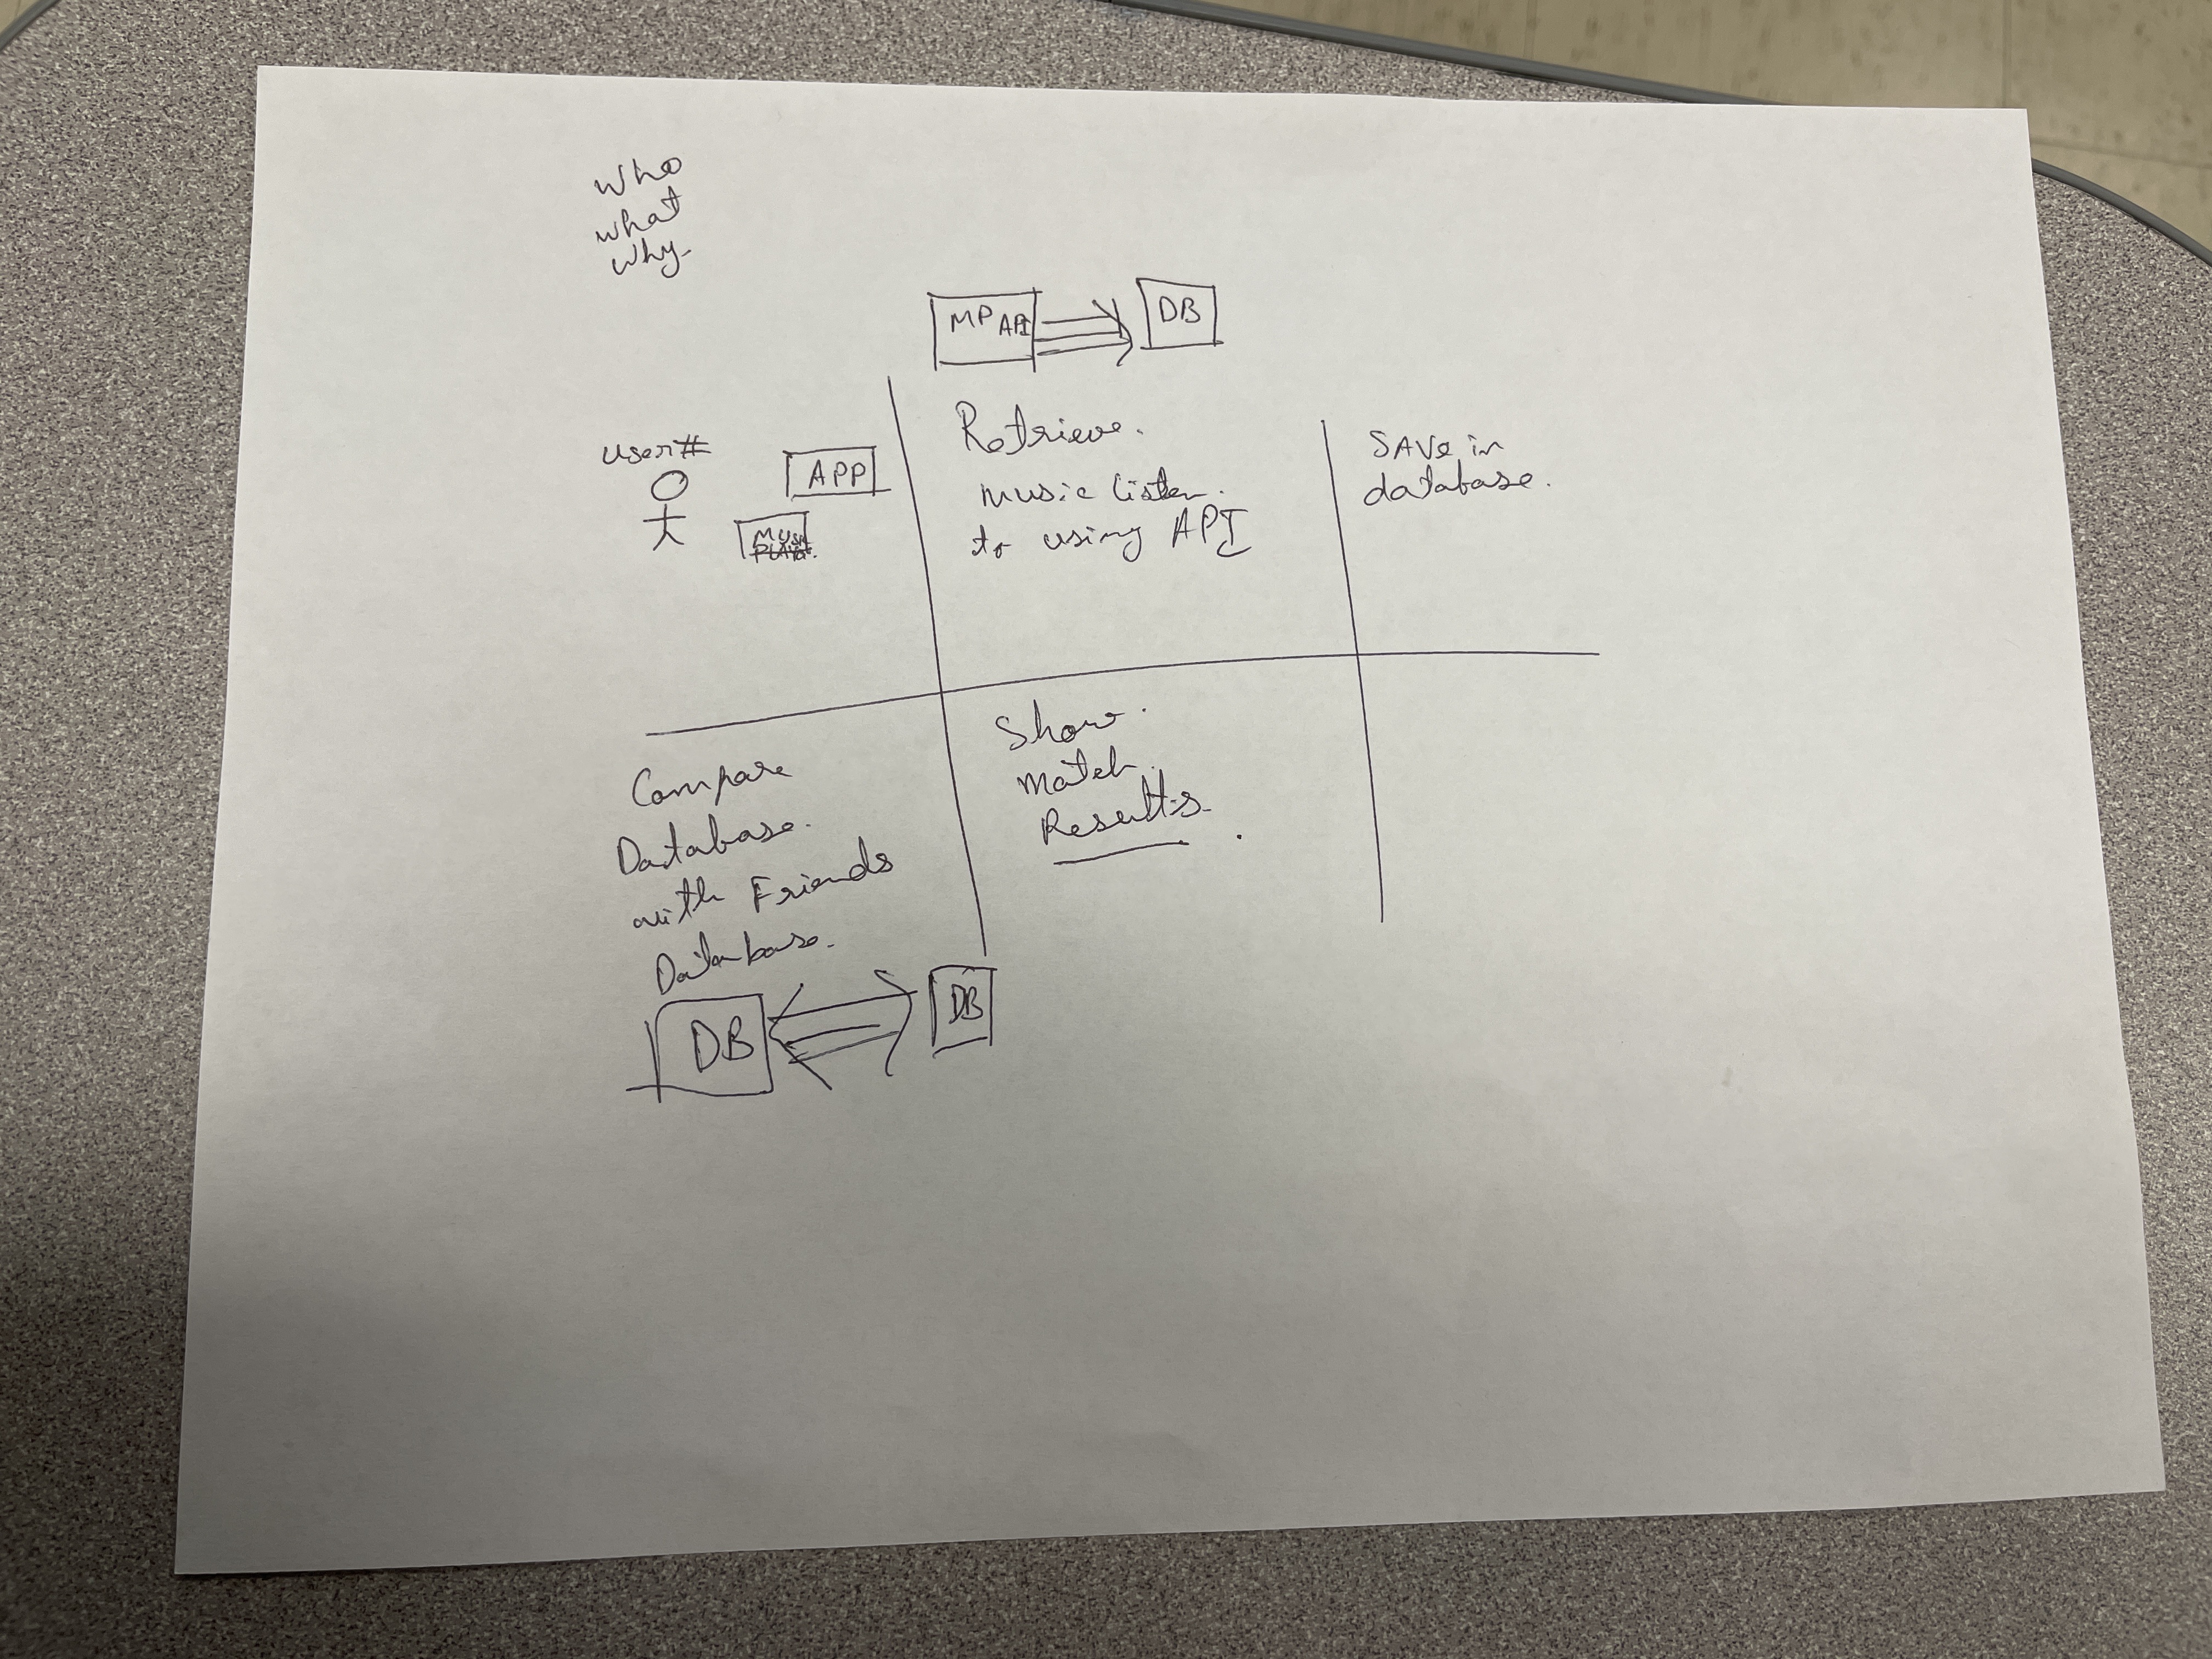 Who
what
why.
MP API
DB
user#
APP
MUSIC
PLAYER.
Retrieve.
music listen.
to using API
SAVe in
database.
Compare
Database.
with Friends
Database.
Show.
Match.
Results.
DB
DB